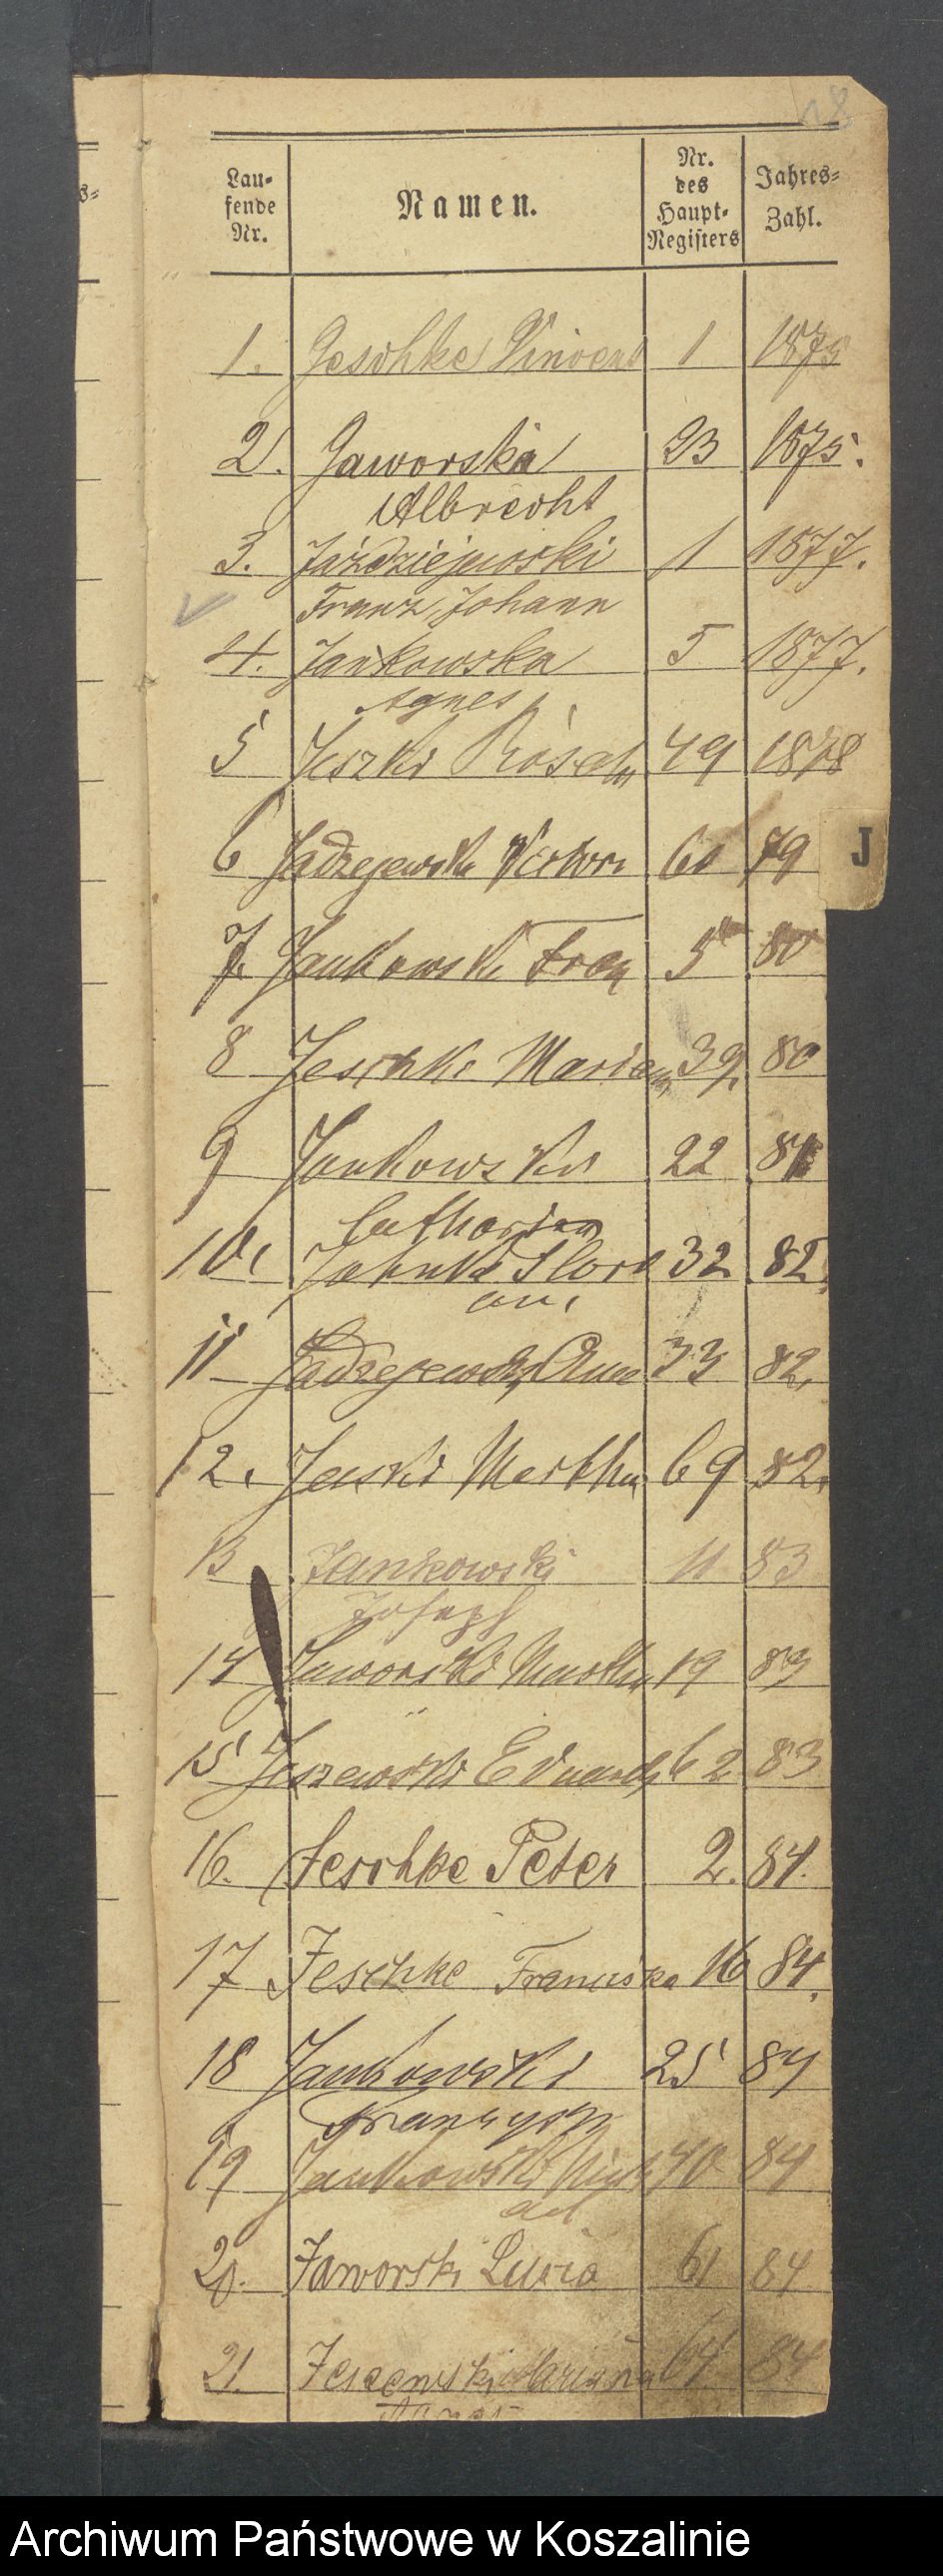 18
Lau-
fende
Nr.
Namen.
Nr.
des
Haupt-
Registers
Jahres-
Zahl.
1. Jeschke Vincent 1 1875
2. Jaworska 23 1875.
Albrecht
3. Jaździejewski 1 1877.
Franz Johann
4. Jankowska 5 1877.
Agnes
5 Jeszki 49 1878
6 Jadzejewski 79
7. Jankowski Franz 5 80
8 Jeschke 39. 80
9 Jankowski 22 81
Catharina
10. 32 82.
11 Jadzejewski 33 82.
12. Jeski Martha 69 82.
13 Jankowski 11 83
Joseph
14 Jaworski Martha 19 83
15 Jeszewski Eduard 62 83
16. Jeschke Peter 2. 84.
17 Jeschke Franziska 16 84.
18 Jankowski 25 84
19 Jankowski Mich 40 84
ael
20. Jaworski Lucia 61 84
21. Marianna 64 84
Agnes
J
Archiwum Państwowe w Koszalinie